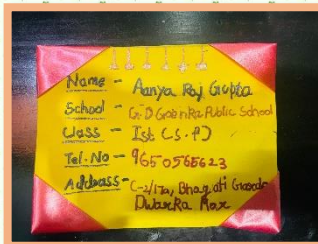 Name - Aanya Raj Gupta
School - G.D Goenka Public School
Class - Ist (S.P)
Tel. No - 9650565623
Address - C-2/17a, Bhagati Garden
Dwarka Mor